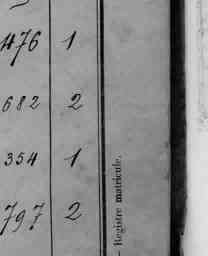 476 1
682 2
354 1
797 2
— Registre matricule.